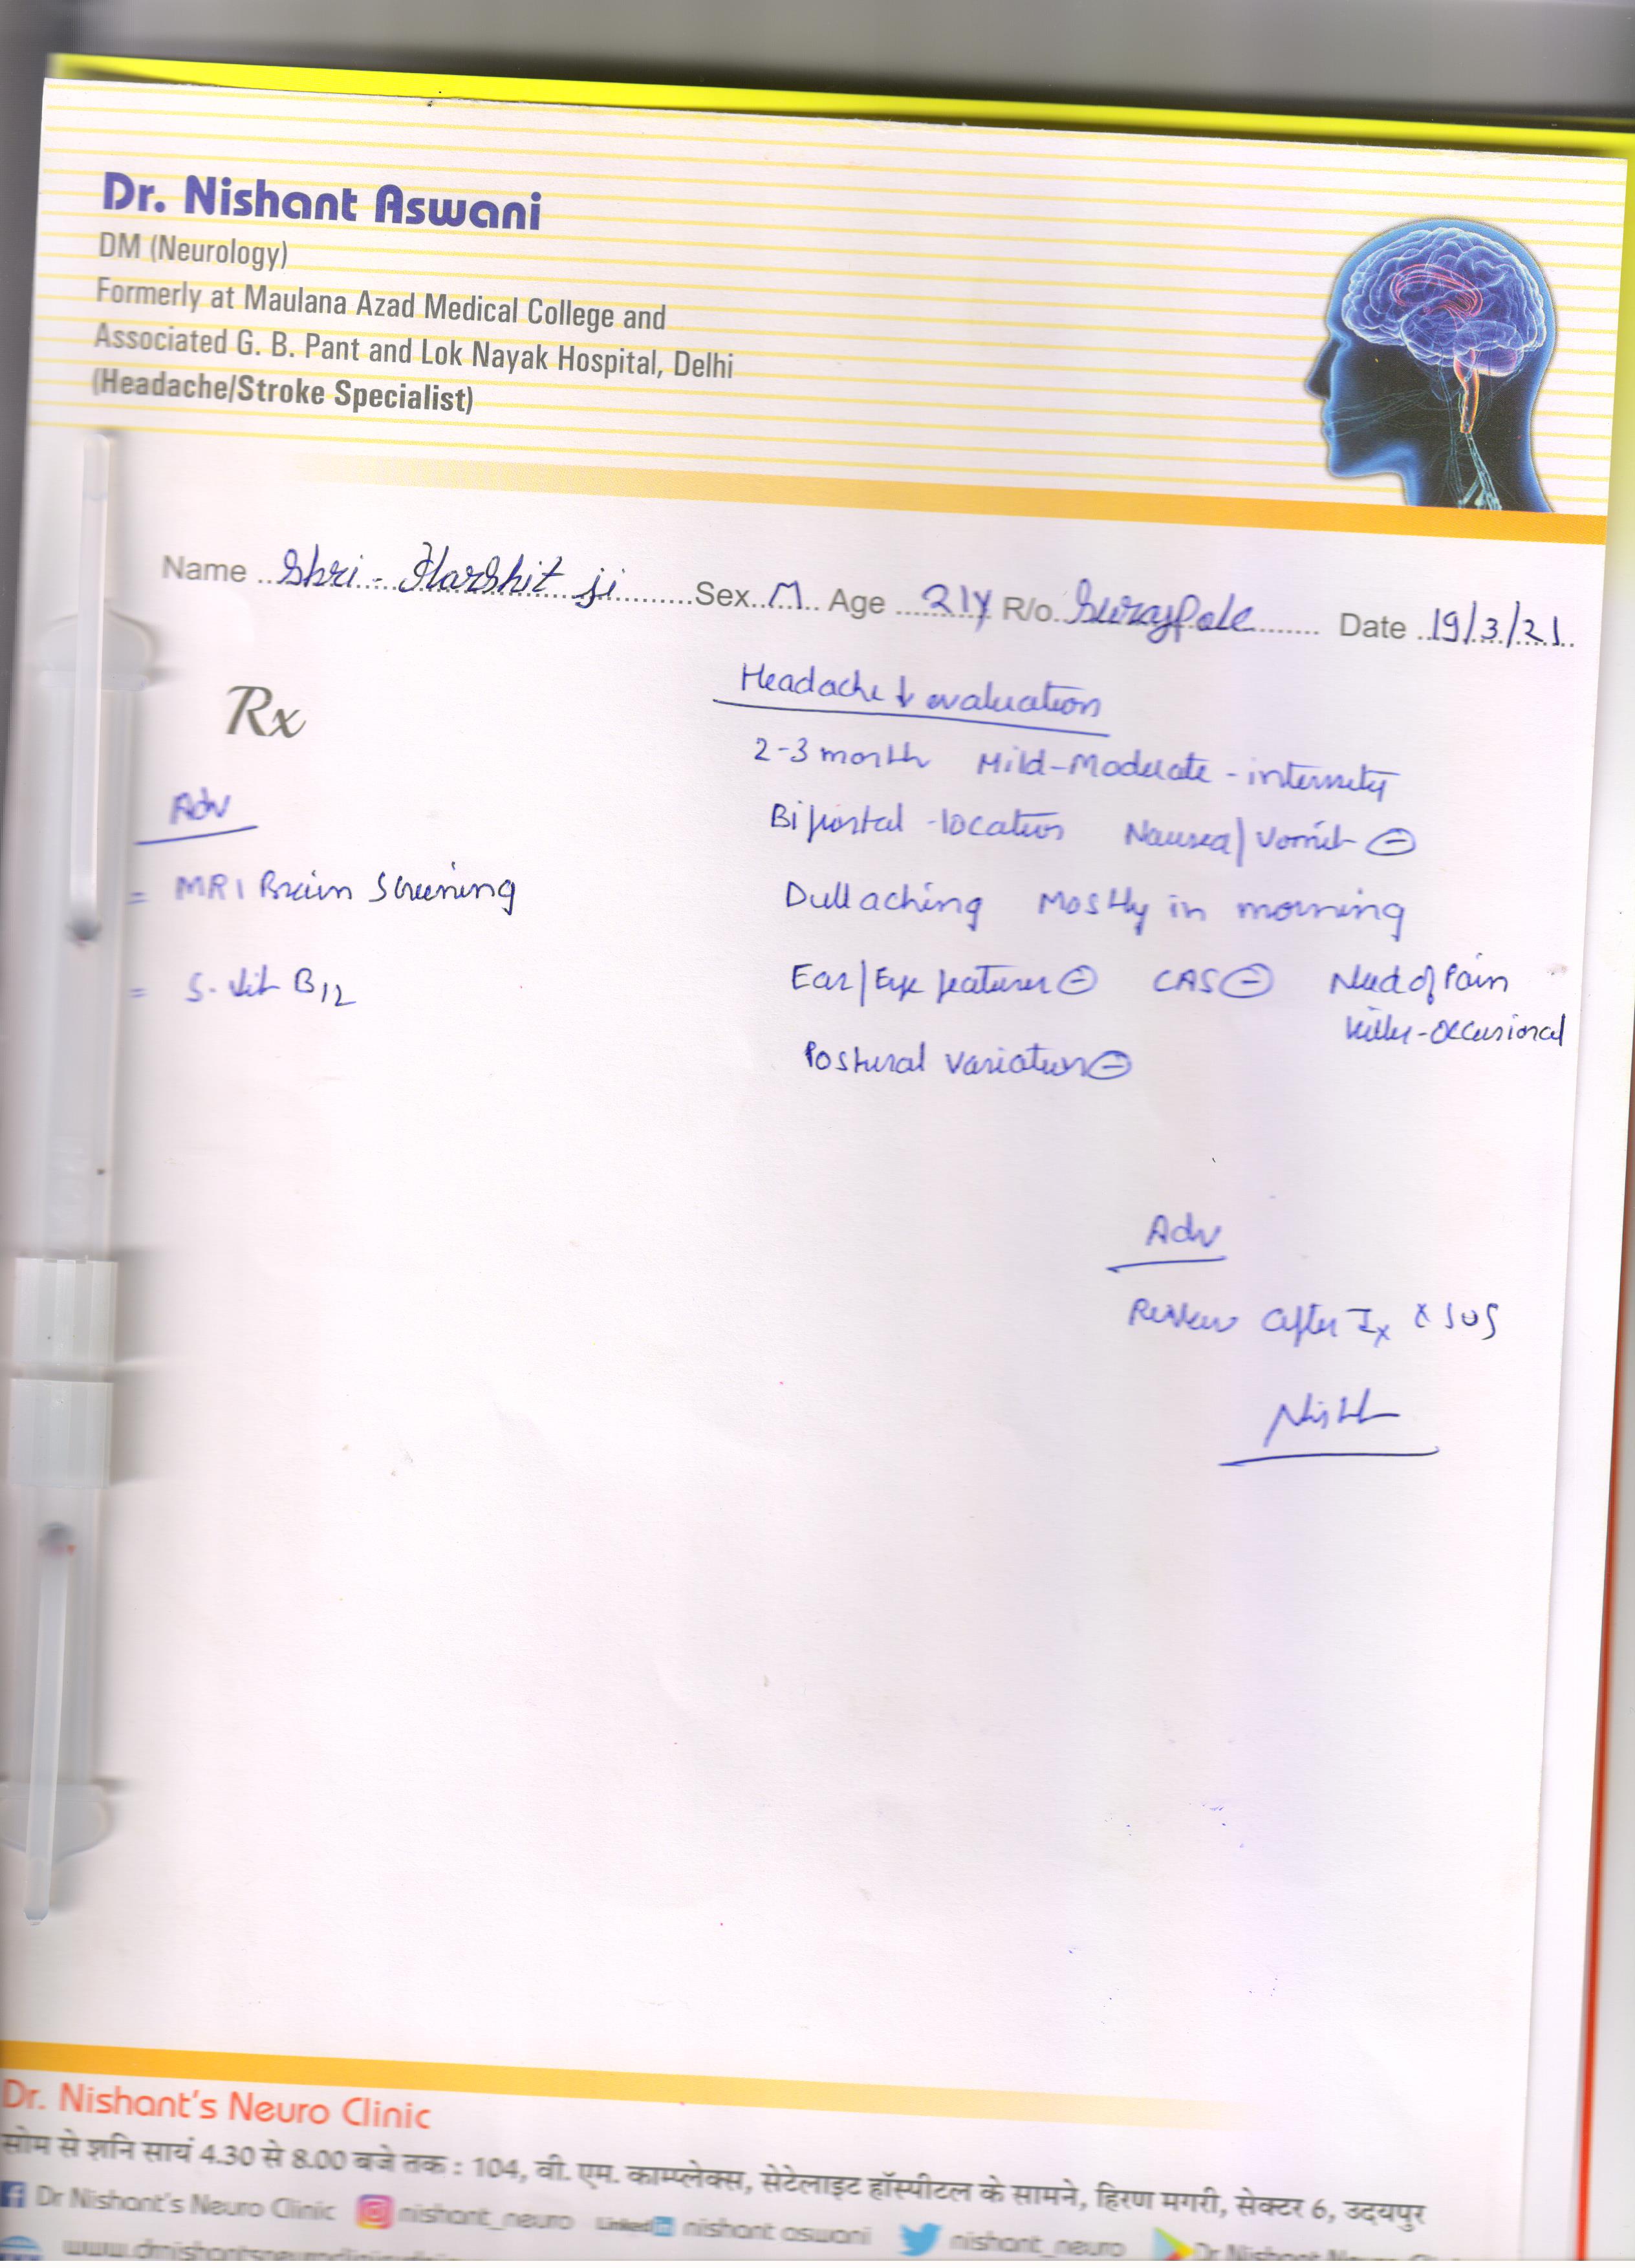 Dr. Nishant Aswani
DM (Neurology)
Formerly at Maulana Azad Medical College and
Associated G. B. Pant and Lok Nayak Hospital, Delhi
(Headache/Stroke Specialist)
Name Shri. Harshit ji Sex M Age 21Y R/o. Surajpole Date 19/3/21
Rx
Headache ↓ evaluation
2-3 month Mild-Moderate - intensity
Adv
Bifrontal - location Nausea/Vomit ⊖
= MRI Brain Screening
Dull aching Mostly in morning
= S. Vit B12
Ear/Eye features ⊖ CAS ⊖ Need of Pain
killer - occasional
Postural Variation ⊖
Adv
Review after Ix & SOS
Dr. Nishant's Neuro Clinic
सोम से शनि सायं 4.30 से 8.00 बजे तक : 104, वी. एम. काम्प्लेक्स, सेटेलाइट हॉस्पीटल के सामने, हिरण मगरी, सेक्टर 6, उदयपुर
Dr Nishant's Neuro Clinic nishant_neuro Linked in nishant aswani nishant_neuro Dr Nishant Neuro